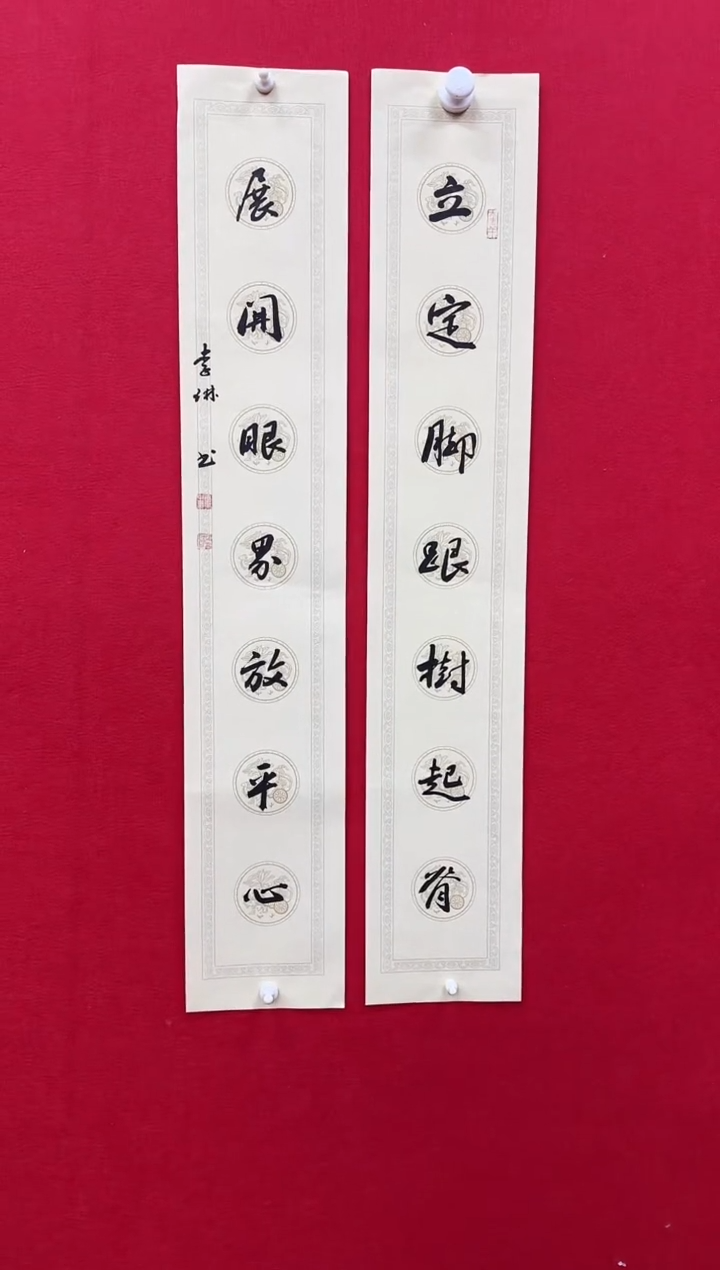 立定脚跟樹起脊
展開眼界放平心
李琳 书